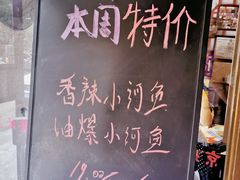 本周特价
香辣小河鱼
油爆小河鱼